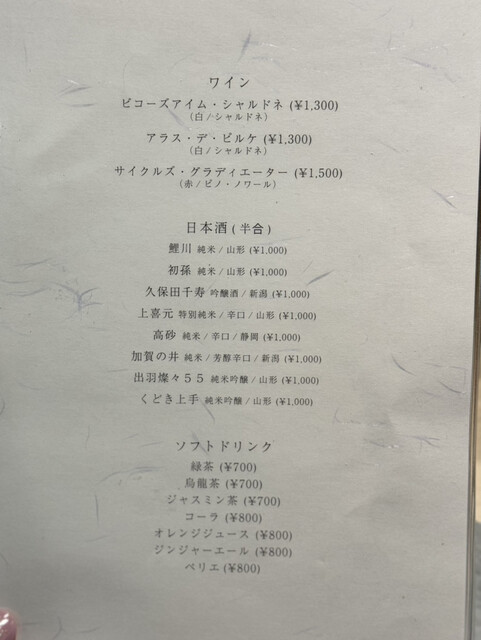 ワイン
ビコーズアイム・シャルドネ (¥1,300)
(白/シャルドネ)
アラス・デ・ピルケ (¥1,300)
(白/シャルドネ)
サイクルズ・グラディエーター (¥1,500)
(赤/ピノ・ノワール)
日本酒 (半合)
鯉川 純米/山形 (¥1,000)
初孫 純米/山形 (¥1,000)
久保田千寿 吟醸酒/新潟 (¥1,000)
上喜元 特別純米/辛口/山形 (¥1,000)
高砂 純米/辛口/静岡 (¥1,000)
加賀の井 純米/芳醇辛口/新潟 (¥1,000)
出羽燦々55 純米吟醸/山形 (¥1,000)
くどき上手 純米吟醸/山形 (¥1,000)
ソフトドリンク
緑茶 (¥700)
烏龍茶 (¥700)
ジャスミン茶 (¥700)
コーラ (¥800)
オレンジジュース (¥800)
ジンジャーエール (¥800)
ペリエ (¥800)